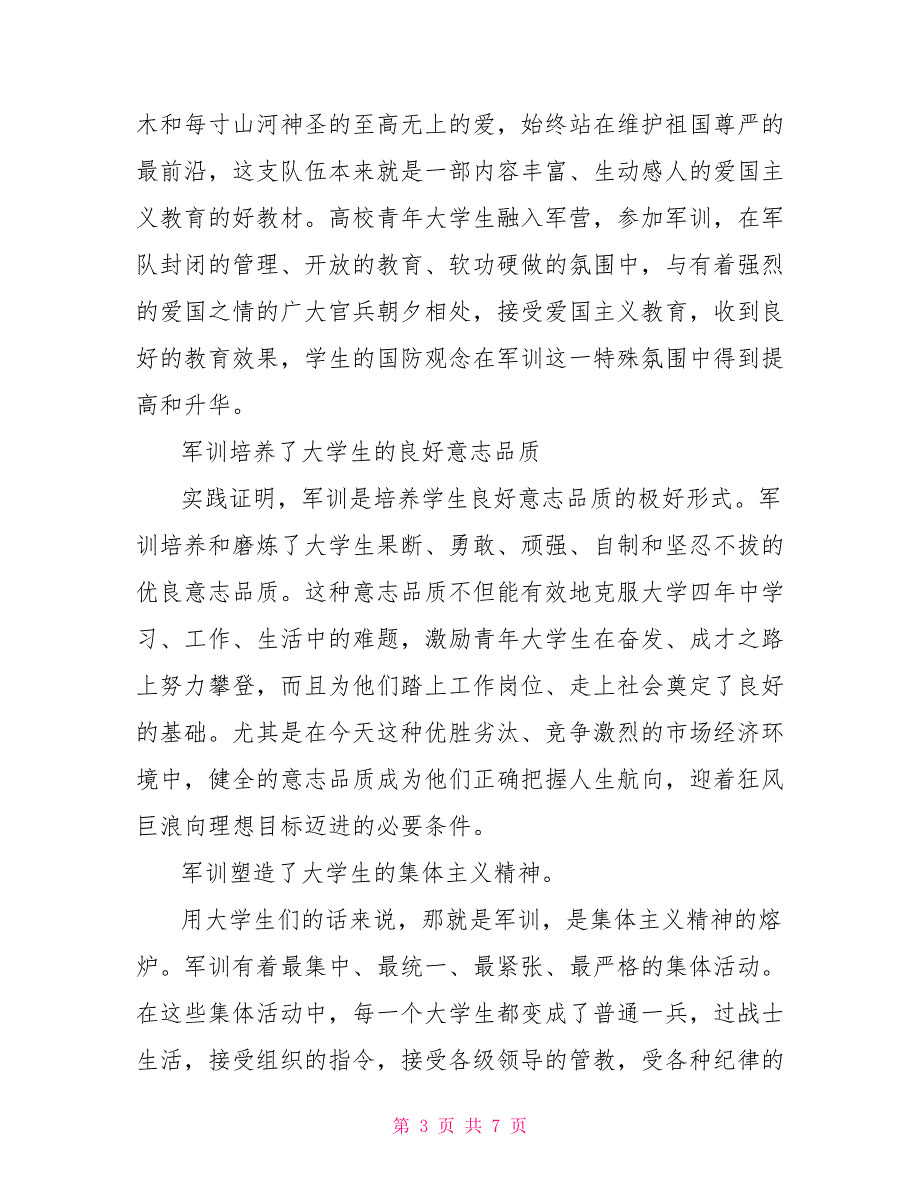 木和每寸山河神圣的至高无上的爱，始终站在维护祖国尊严的
最前沿，这支队伍本来就是一部内容丰富、生动感人的爱国主
义教育的好教材。高校青年大学生融入军营，参加军训，在军
队封闭的管理、开放的教育、软功硬做的氛围中，与有着强烈
的爱国之情的广大官兵朝夕相处，接受爱国主义教育，收到良
好的教育效果，学生的国防观念在军训这一特殊氛围中得到提
高和升华。
军训培养了大学生的良好意志品质
实践证明，军训是培养学生良好意志品质的极好形式。军
训培养和磨炼了大学生果断、勇敢、顽强、自制和坚忍不拔的
优良意志品质。这种意志品质不但能有效地克服大学四年中学
习、工作、生活中的难题，激励青年大学生在奋发、成才之路
上努力攀登，而且为他们踏上工作岗位、走上社会奠定了良好
的基础。尤其是在今天这种优胜劣汰、竞争激烈的市场经济环
境中，健全的意志品质成为他们正确把握人生航向，迎着狂风
巨浪向理想目标迈进的必要条件。
军训塑造了大学生的集体主义精神。
用大学生们的话来说，那就是军训，是集体主义精神的熔
炉。军训有着最集中、最统一、最紧张、最严格的集体活动。
在这些集体活动中，每一个大学生都变成了普通一兵，过战士
生活，接受组织的指令，接受各级领导的管教，受各种纪律的
第 3 页 共 7 页